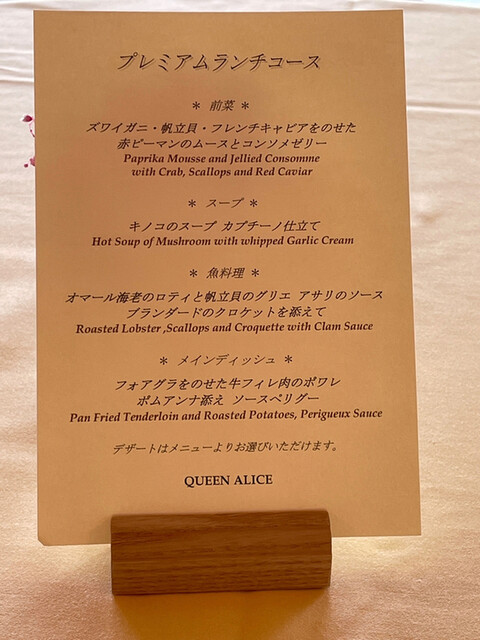 プレミアムランチコース
＊ 前菜 ＊
ズワイガニ・帆立貝・フレンチキャビアをのせた
赤ピーマンのムースとコンソメゼリー
Paprika Mousse and Jellied Consomme
with Crab, Scallops and Red Caviar
＊ スープ ＊
キノコのスープ カプチーノ仕立て
Hot Soup of Mushroom with whipped Garlic Cream
＊ 魚料理 ＊
オマール海老のロティと帆立貝のグリエ アサリのソース
ブランダードのクロケットを添えて
Roasted Lobster ,Scallops and Croquette with Clam Sauce
＊ メインディッシュ ＊
フォアグラをのせた牛フィレ肉のポワレ
ポムアンナ添え ソースペリグー
Pan Fried Tenderloin and Roasted Potatoes, Perigueux Sauce
デザートはメニューよりお選びいただけます。
QUEEN ALICE